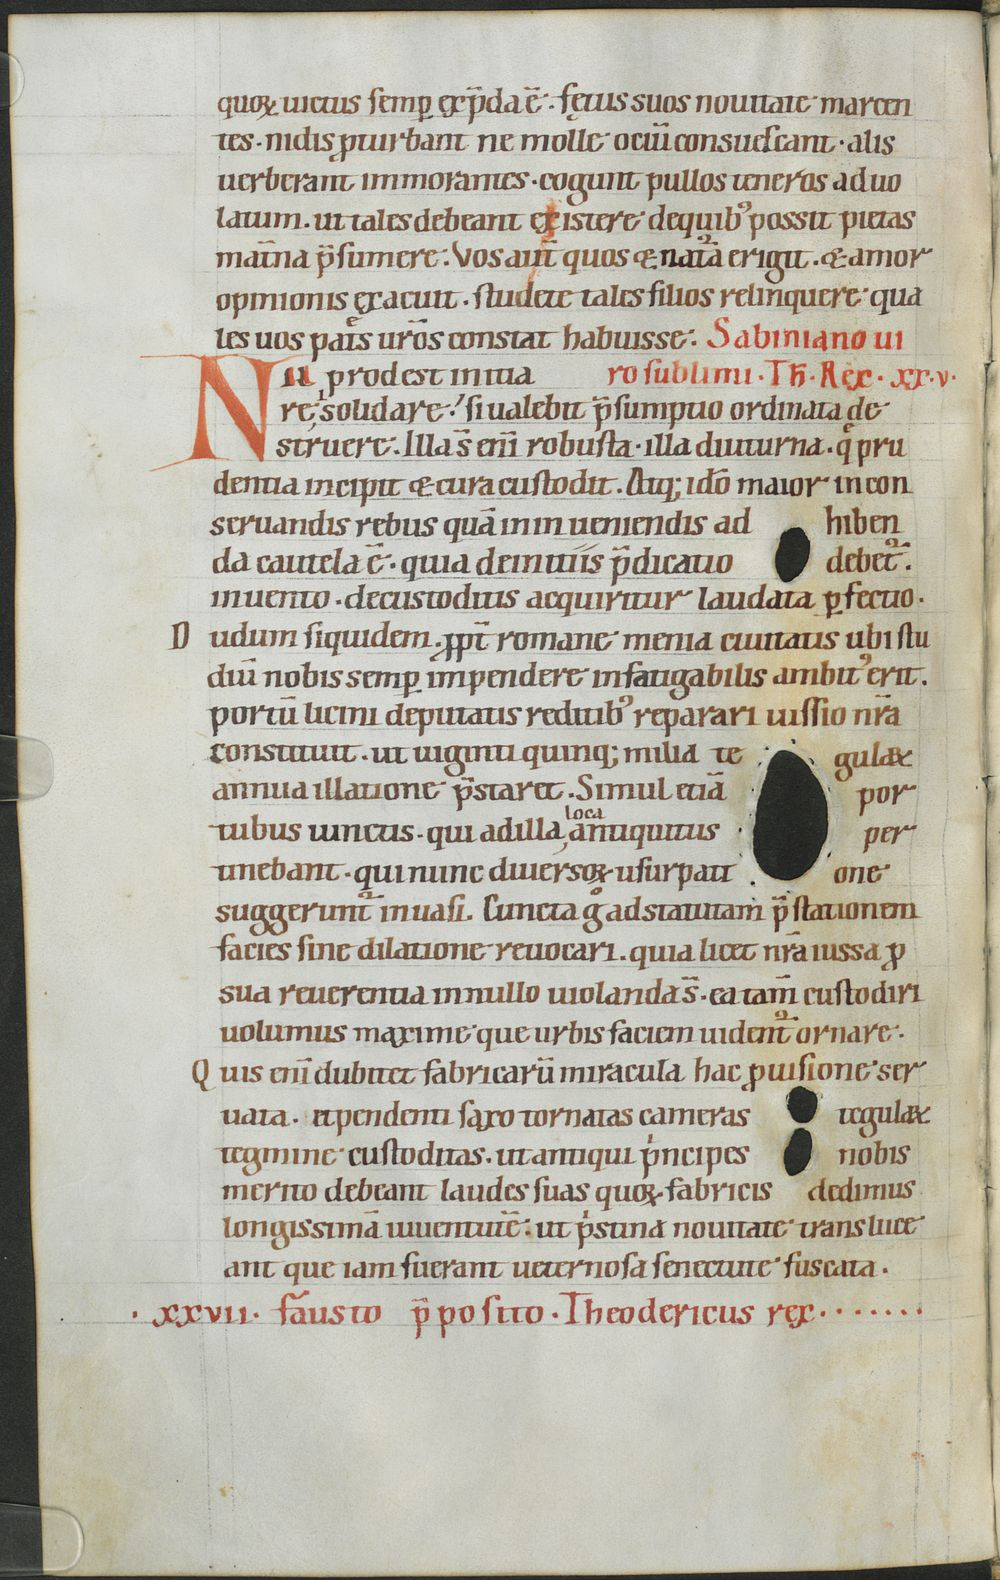 quoꝝ uictus semp̲ exp̄da ē. fętus suos nouitate marcen
tes. nidis ꝓturbant ne molle ociū consuescant. alis
uerberant immorantes. cogunt pullos teneros ad uo
latum. ut tales debeant existere de quib᾽ possit pietas
mat̄na p̄sumere. Vos aut̄ quos & natᷓa erigit. & amor
opinionis exacuit. studete tales filios relinquere qua
les uos pat̄s ur̄os constat habuisse. Sabiniano ui
Nil prodest initia ro sublimi. Th̄. Rex. xx.v.
rei solidare. si ualebit p̄sumptio ordinata de
struere. Illa s̄ eni̅ robusta. illa diuturna. q̄ pru
dentia incipit & cura custodit. Atq; id̄o maior in con
seruandis rebus quā in inueniendis adhiben
da cautela ē. quia de initiis p̄dicatio debet᷑.
inuento. de custoditis acquiritur laudata p̲fectio.
Dudum siquidem. ꝓpt̄ romane menia ciuitatis ubi stu
diū nobis semp̲ impendere infatigabilis ambit᾽ erit.
portū licini deputatis reditib᾽ reparari iussio nr̄a
constituit. ut uiginti quinq; milia tegulaꝝ
annua illatione p̄staret. Simul etiā por
tubus iunctis. qui ad illa loca antiquitus per
tinebant. qui nunc diuersoꝝ usurpatione
suggerunt᷑ inuasi. Cuncta g̊ ad statutam p̄stationem
facies sine dilatione reuocari. quia licet nr̄a iussa ꝓ
sua reuerentia in nullo uiolanda s̄. ea tam̄ custodiri
uolumus maxime que urbis faciem uident᷑ ornare.
Quis eni̅ dubitet fabricarū miracula hac ꝓuisione ser
uata. et pendenti saxo tornatas cameras tegulaꝝ
tegmine custoditas. ut antiqui pͥncipes nobis
merito debeant laudes suas quoꝝ fabricis dedimus
longissimā iuuentutē. ut pͥstina nouitate transluce
ant que iam fuerant ueternosa senectute fuscata.
.xxvii. fausto p̄posito. Theodericus rex.......